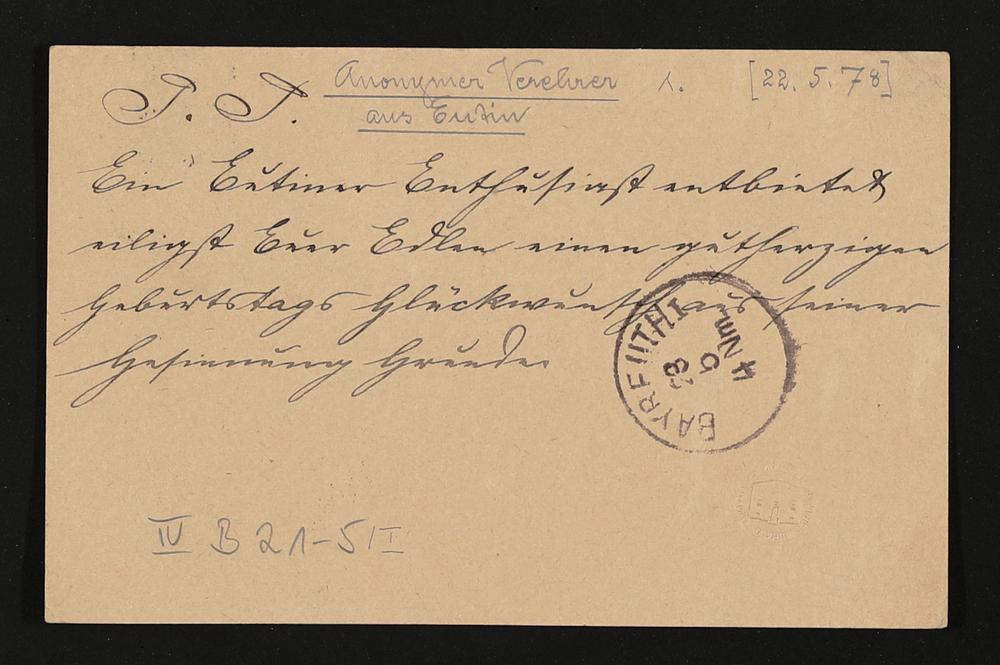 P. P. Anonymer Verehrer 1. [22. 5. 78]
aus Eutin
Ein Eutiner Enthusiast entbietet
eiligst Euer Edlen einen gutherzigen
Geburtstags Glückwunsch aus seiner
Gesinnung Grunde.
BAYREUTH I
4 Nm
IV B 21-5/I